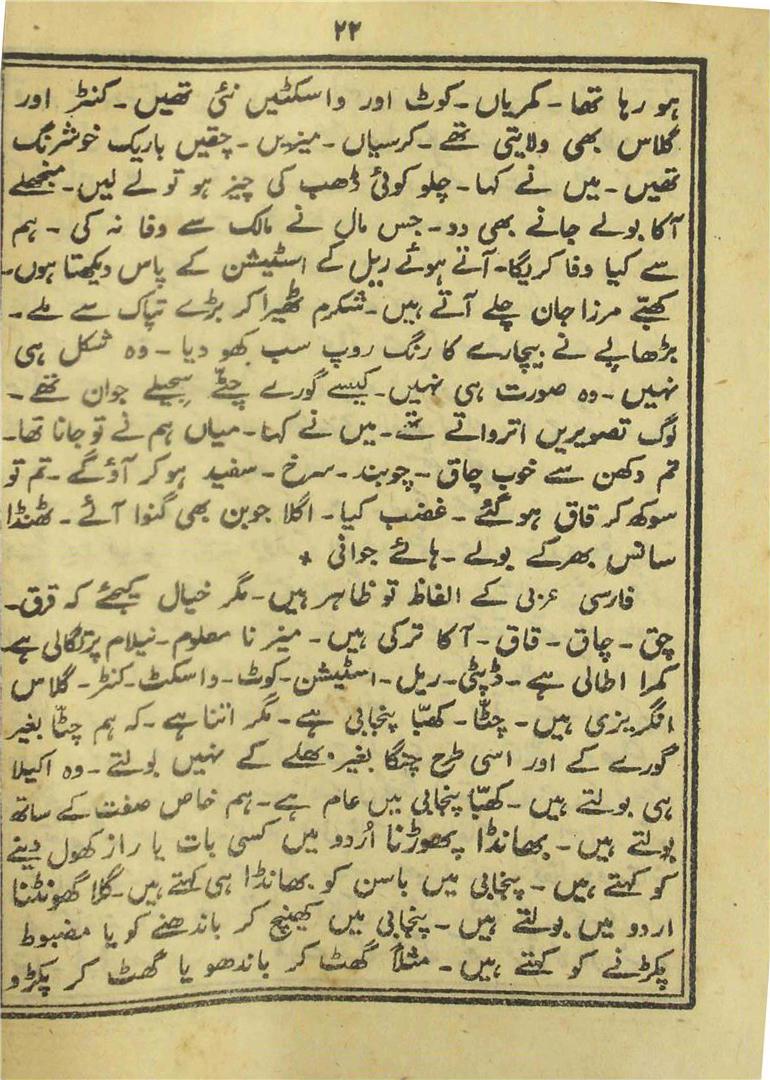 ۲۲
ہو رہا تھا - کمریاں - کوٹ اور واسکٹیں نئی تھیں - کنٹر اور
گلاس بھی ولایتی تھے - کرسیاں - میزیں - چقیں باریک خوشرنگ
تھیں - میں نے کہا - چلو کوئی ڈھب کی چیز ہو تو لے لیں - منجھلے
آکا بولے جانے بھی دو - جس مال نے مالک سے وفا نہ کی - ہم
سے کیا وفا کریگا - آتے ہوئے ریل کے اسٹیشن کے پاس دیکھتا ہوں -
کھبّے مرزا جان چلے آتے ہیں - شکرم ٹھیرا کر بڑے تپاک سے ملے -
بڑھاپے نے بیچارے کا رنگ روپ سب کھو دیا - وہ شکل ہی
نہیں - وہ صورت ہی نہیں - کیسے گورے چٹّے سجیلے جوان تھے -
لوگ تصویریں اترواتے تھے - میں نے کہا - میاں ہم نے تو جانا تھا -
تم دکھن سے خوب چاق - چوبند - سرخ - سفید ہو کر آؤگے - تم تو
سوکھ کر قاق ہو گئے - غضب کیا - اگلا جوبن بھی گنوا آئے - ٹھنڈا
سانس بھر کے بولے - ہائے جوانی ٭
فارسی عربی کے الفاظ تو ظاہر ہیں - مگر خیال کیجئے کہ قرق -
چق - چاق - قاق - آکا ترکی ہیں - میز نا معلوم - نیلام پرتگالی ہے
کمرا اطالی ہے - ڈپٹی - ریل - اسٹیشن - کوٹ - واسکٹ - کنٹر - گلاس
انگریزی ہیں - چٹّا - کھبّا پنجابی ہے - مگر اتنا ہے - کہ ہم چٹّا بغیر
گورے کے اور اسی طرح چنگا بغیر بھلے کے نہیں بولتے - وہ اکیلا
ہی بولتے ہیں - کھبّا پنجابی میں عام ہے - ہم خاص صفت کے ساتھ
بولتے ہیں - بھانڈا پھوڑنا اُردو میں کسی بات یا راز کھول دینے
کو کہتے ہیں - پنجابی میں باسن کو بھانڈا ہی کہتے ہیں - گلا گھونٹنا
اردو میں بولتے ہیں - پنجابی میں کھینچ کر باندھنے کو یا مضبوط
پکڑنے کو کہتے ہیں - مثلاً گھٹ کر باندھو یا گھٹ کر پکڑو